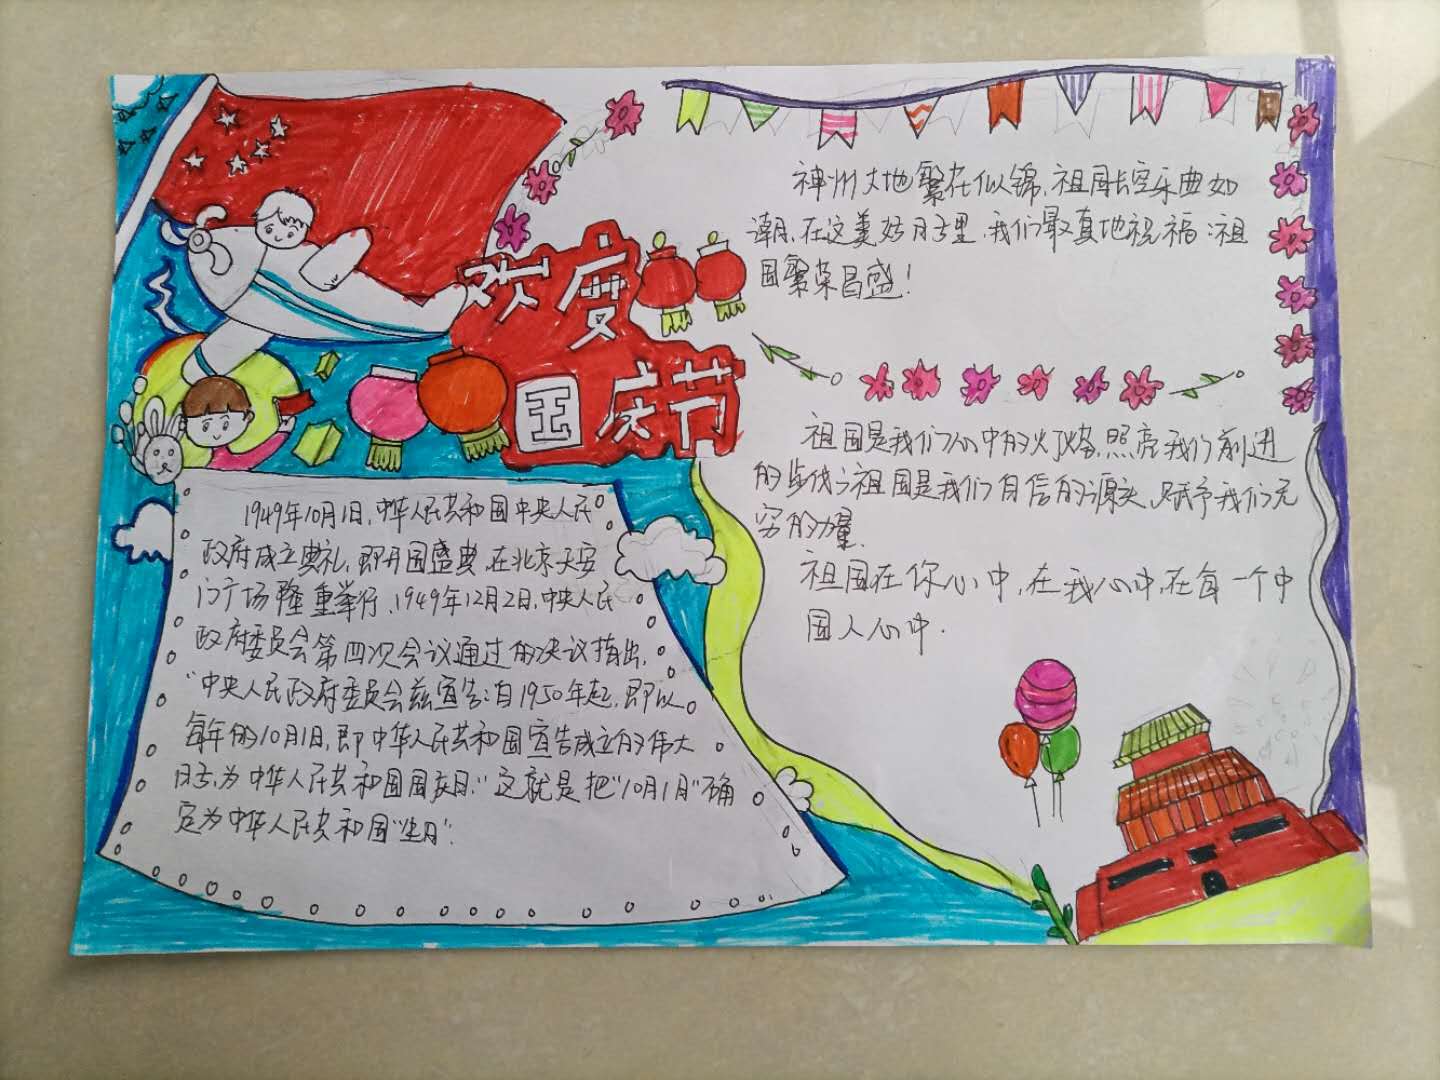 欢度
国庆节
神州大地繁花似锦,祖国长空乐曲如
潮,在这美好日子里,我们最真地祝福:祖
国繁荣昌盛!
祖国是我们心中的灯塔,照亮我们前进
的步伐;祖国是我们自信的源头,赋予我们无
穷的力量.
祖国在你心中,在我心中,在每一个中
国人心中.
1949年10月1日,中华人民共和国中央人民
政府成立典礼,即开国盛典,在北京天安
门广场隆重举行,1949年12月2日,中央人民
政府委员会第四次会议通过的决议指出,
"中央人民政府委员会兹宣告:自1950年起,即以
每年的10月1日,即中华人民共和国宣告成立的伟大
日子,为中华人民共和国国庆日."这就是把"10月1日"确
定为中华人民共和国"生日".